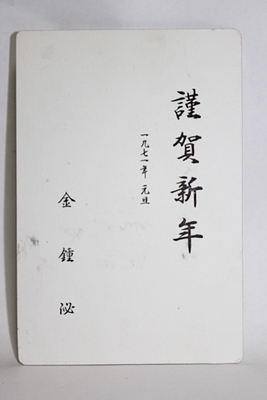 謹賀新年
一九七一年 元旦
金鍾泌